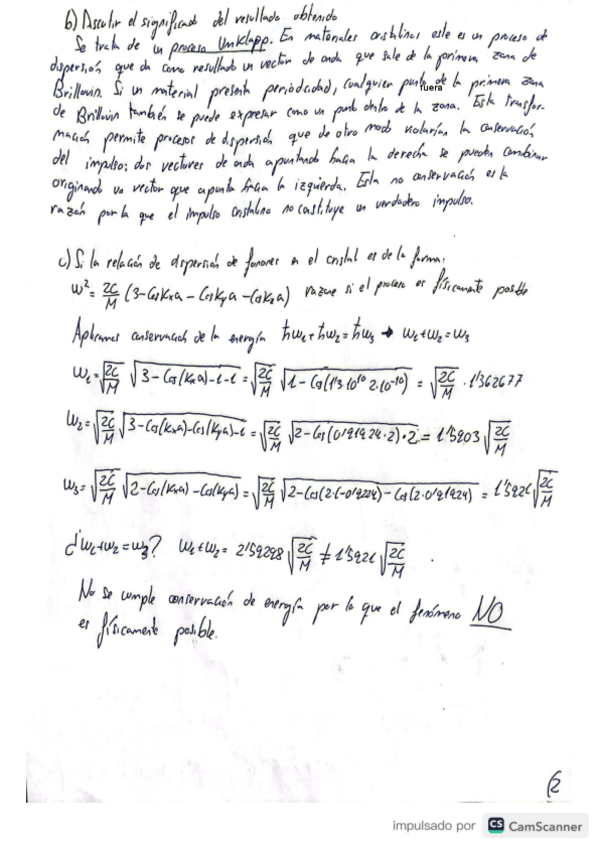 b) Discutir el significado del resultado obtenido
Se trata de un proceso Umklapp. En materiales cristalinos este es un proceso de
dispersión que da como resultado un vector de onda que sale de la primera zona de
Brillouin. Si un material presenta periodicidad, cualquier punto fuera de la primera zona
de Brillouin también se puede expresar como un punto dentro de la zona. Esta transfor-
mación permite procesos de dispersión que de otro modo violarían la conservación
del impulso: dos vectores de onda apuntando hacia la derecha se pueden combinar
originando un vector que apunta hacia la izquierda. Esta no conservación es la
razón por la que el impulso cristalino no constituye un verdadero impulso.
c) Si la relación de dispersión de fonones en el cristal es de la forma:
ω² = 2C/M (3-Cos Kxa - Cos Kya - Cos Kza) razone si el proceso es físicamente posible
Aplicamos conservación de la energía ħω1 + ħω2 = ħω3 → ω1+ω2 = ω3
ω1 = √(2C/M) √(3-Cos(Kxa)-1-1) = √(2C/M) √(1-Cos(1'3·10¹⁰ 2·10⁻¹⁰)) = √(2C/M) · 1'362677
ω2 = √(2C/M) √(3-Cos(Kxa)-Cos(Kya)-1) = √(2C/M) √(2-Cos(0'91924·2)·2) = 1'5903 √(2C/M)
ω3 = √(2C/M) √(2-Cos(Kxa)-Cos(Kya)) = √(2C/M) √(2-Cos(2·(-0'9224))-Cos(2·0'91924)) = 1'5921 √(2C/M)
¿ω1+ω2 = ω3? ω1+ω2 = 2'59298 √(2C/M) ≠ 1'5921 √(2C/M)
No se cumple conservación de energía por lo que el fenómeno NO
es físicamente posible.
2
impulsado por CS CamScanner